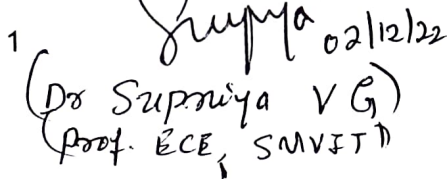 1
Supriya 02/12/22
(Dr Supriya V G)
(Prof. ECE, SMVITD